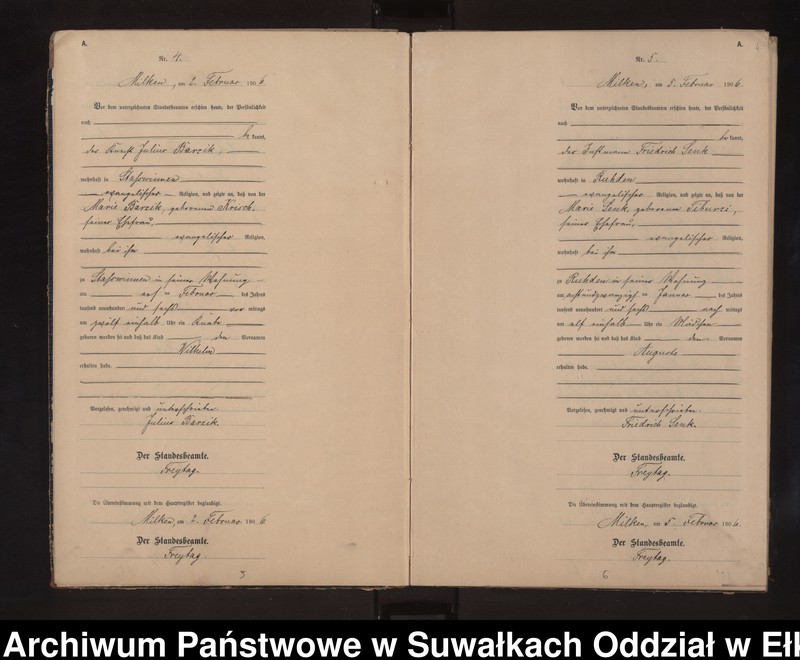 A.
Nr. 4.
Milken, am 2. Februar 1906
Vor dem unterzeichneten Standesbeamten erschien heute, der Persönlichkeit
nach
bekannt,
der Julius Barzik,
wohnhaft in Staßwinnen
evangelischer Religion, und zeigte an, daß von der
Marie Barzik, geborenen Krisch,
seiner Ehefrau,
evangelischer Religion,
wohnhaft bei ihm
zu Staßwinnen in seiner Wohnung
am ten Februar des Jahres
tausend neunhundert und sechs vor mittags
um zwölf einhalb Uhr ein Knabe
geboren worden sei und daß das Kind den Vornamen
Wilhelm
erhalten habe.
Vorgelesen, genehmigt und unterschrieben
Julius Barzik.
Der Standesbeamte.
Freytag.
Die Übereinstimmung mit dem Hauptregister beglaubigt.
Milken, am 2. Februar 1906
Der Standesbeamte.
Freytag.
3
A.
Nr. 5.
Milken, am 5. Februar 1906.
Vor dem unterzeichneten Standesbeamten erschien heute, der Persönlichkeit
nach
bekannt,
der Instmann Friedrich Senk
wohnhaft in Ruhden
evangelischer Religion, und zeigte an, daß von der
Marie Senk, geborenen Tiburzi,
seiner Ehefrau,
evangelischer Religion,
wohnhaft bei ihm
zu Ruhden in seiner Wohnung
am achtundzwanzigsten Januar des Jahres
tausend neunhundert und sechs nach mittags
um elf einhalb Uhr ein Mädchen
geboren worden sei und daß das Kind den Vornamen
Auguste
erhalten habe.
Vorgelesen, genehmigt und unterschrieben.
Friedrich Senk.
Der Standesbeamte.
Freytag.
Die Übereinstimmung mit dem Hauptregister beglaubigt.
Milken, am 5. Februar 1906.
Der Standesbeamte.
Freytag.
6
Archiwum Państwowe w Suwałkach Oddział w Ełk